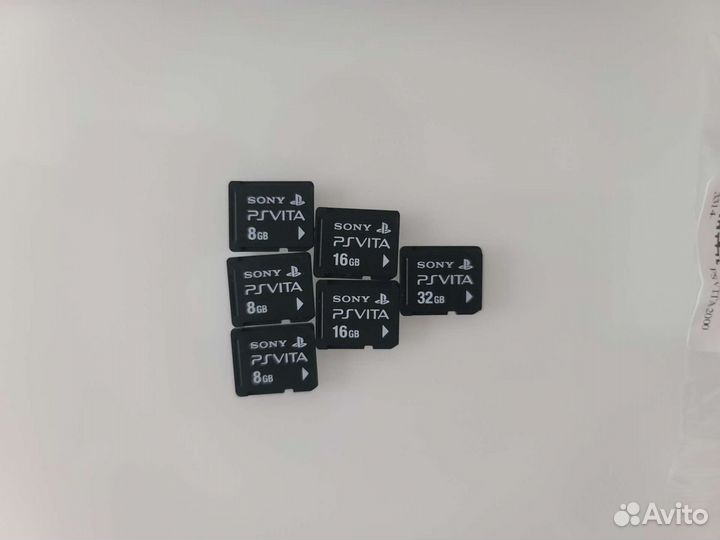 SONY
PSVITA
8 GB
SONY
PSVITA
8 GB
SONY
PSVITA
8 GB
SONY
PSVITA
16 GB
SONY
PSVITA
16 GB
SONY
PSVITA
32 GB
VITA2000
Avito